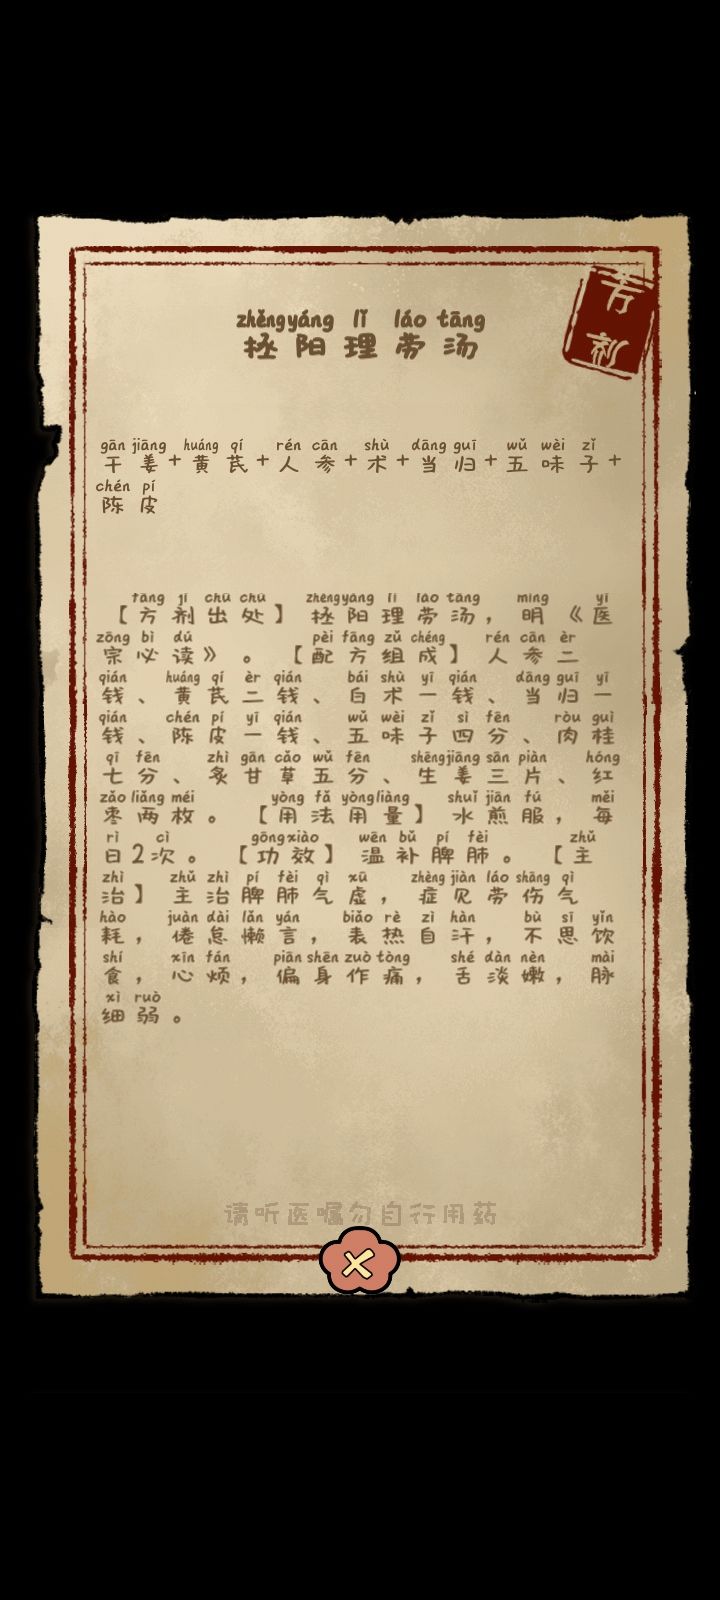 方剂
zhěng yáng lǐ láo tāng
拯阳理劳汤
gān jiāng huáng qí rén cān shù dāng guī wǔ wèi zǐ
干姜+黄芪+人参+术+当归+五味子+
chén pí
陈皮
fāng jì chū chù zhěng yáng lǐ láo tāng míng yī
【方剂出处】拯阳理劳汤，明《医
zōng bì dú pèi fāng zǔ chéng rén cān èr
宗必读》。【配方组成】人参二
qián huáng qí èr qián bái shù yī qián dāng guī yī
钱、黄芪二钱、白术一钱、当归一
qián chén pí yī qián wǔ wèi zǐ sì fēn ròu guì
钱、陈皮一钱、五味子四分、肉桂
qī fēn zhì gān cǎo wǔ fēn shēng jiāng sān piàn hóng
七分、炙甘草五分、生姜三片、红
zǎo liǎng méi yòng fǎ yòng liàng shuǐ jiān fú měi
枣两枚。【用法用量】水煎服，每
rì cì gōng xiào wēn bǔ pí fèi zhǔ
日2次。【功效】温补脾肺。【主
zhì zhǔ zhì pí fèi qì xū zhèng jiàn láo shāng qì
治】主治脾肺气虚，症见劳伤气
hào juàn dài lǎn yán biǎo rè zì hàn bù sī yǐn
耗，倦怠懒言，表热自汗，不思饮
shí xīn fán piān shēn zuò tòng shé dàn nèn mài
食，心烦，偏身作痛，舌淡嫩，脉
xì ruò
细弱。
请听医嘱勿自行用药